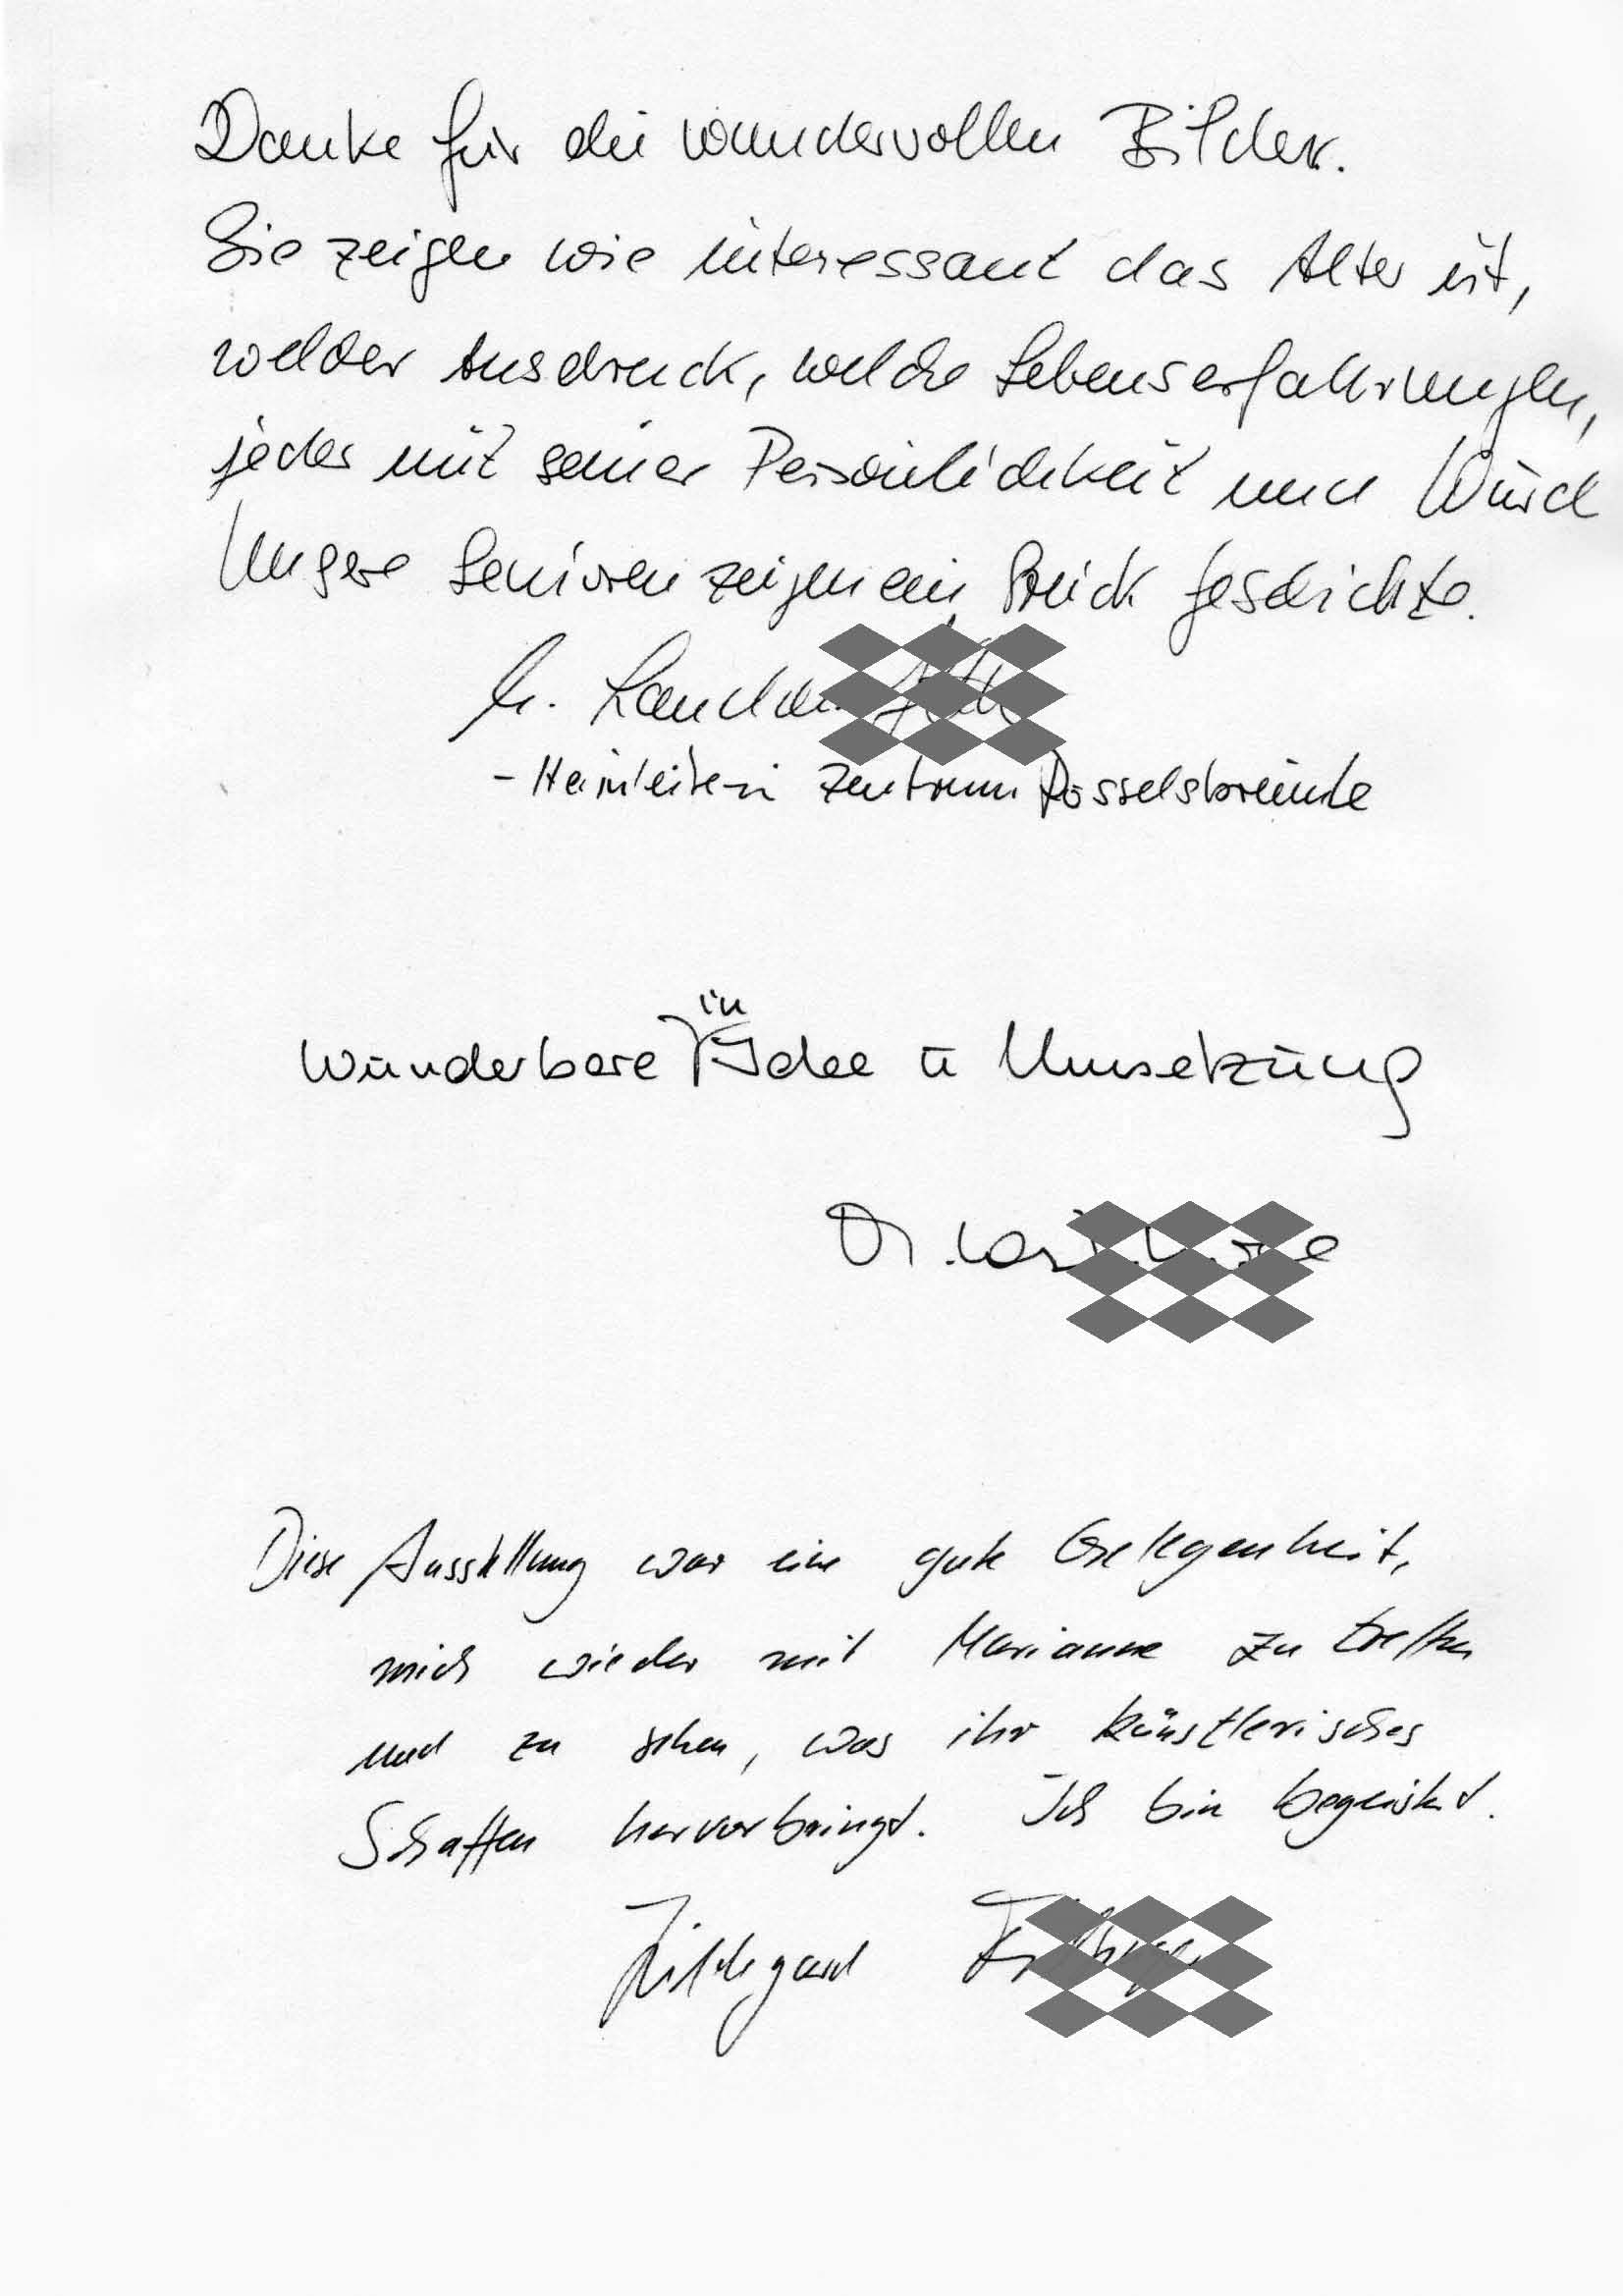 Danke für die wundervollen Bilder.
Sie zeigen wie interessant das Alter ist,
welcher Ausdruck, welche Lebenserfahrungen,
jeder mit seiner Persönlichkeit und Würd
Unsere Senioren zeigen ein Stück Geschichte.
- Heimleiterin Zentrum
in
Wunderbare Idee u Umsetzung
Dr.
Diese Ausstellung war eine gute Gelegenheit,
mich wieder mit Marianne zu treffen
und zu sehen, was ihr künstlerisches
Schaffen hervorbringt. Ich bin begeistert.
Hildegard